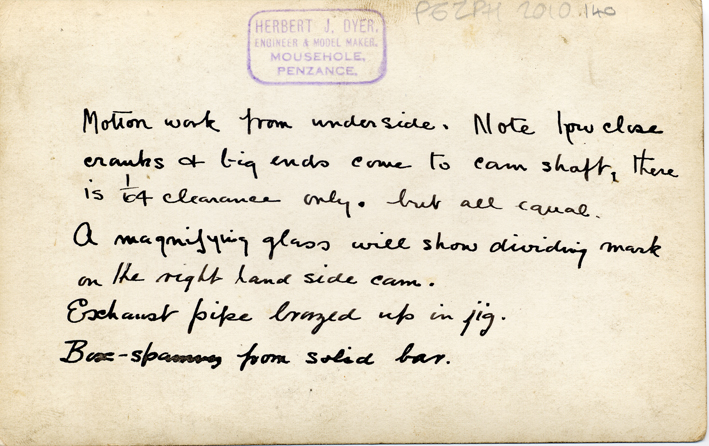 PEZPH 2010.140
HERBERT J. DYER.
ENGINEER & MODEL MAKER.
MOUSEHOLE,
PENZANCE.
Motion work from underside. Note how close
cranks & big ends come to cam shaft, there
is 1/64 clearance only. but all equal.
A magnifying glass will show dividing mark
on the right hand side cam.
Exhaust pipe brazed up in jig.
Box-spanners from solid bar.